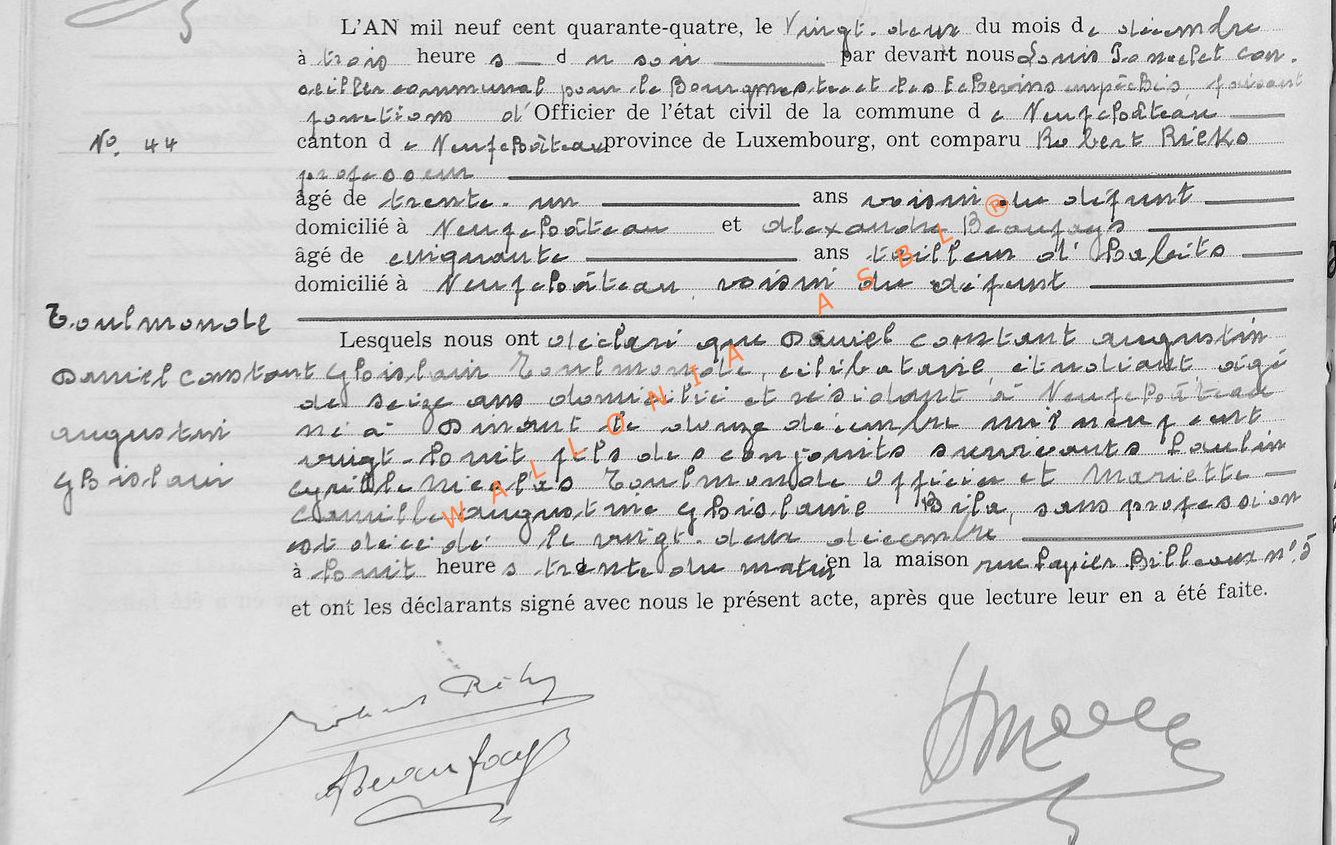 L'AN mil neuf cent quarante-quatre, le Vingt-deux du mois de décembre
à trois heures du soir par devant nous Louis con.
seiller communal pour le Bourgmestre et les Echevins empêchés, faisant
fonctions d'Officier de l'état civil de la commune de Neufchâteau
No. 44
canton de Neufchâteau province de Luxembourg, ont comparu Robert
professeur
âgé de trente-un ans voisin du défunt
domicilié à Neufchâteau et Alexandre Beaufays
âgé de cinquante ans tailleur d'habits
domicilié à Neufchâteau, voisin du défunt
Toulmonde
Daniel Constant
Augustin
Ghislain
Lesquels nous ont déclaré que Daniel Constant Augustin
Ghislain Toulmonde, célibataire, étudiant âgé
de seize ans domicilié et résidant à Neufchâteau
né à Dinant le douze décembre mil neuf cent
vingt-huit, fils des conjoints suivants Paulin
Cyrille Nicolas Toulmonde Officier et Mariette
Camille Augustine Ghislaine Bila, sans profession
est décédé le vingt-deux décembre
à huit heures trente du matin en la maison rue Papier Billeaux n° 5
et ont les déclarants signé avec nous le présent acte, après que lecture leur en a été faite.
WALLONIA ASBL ®
Beaufays